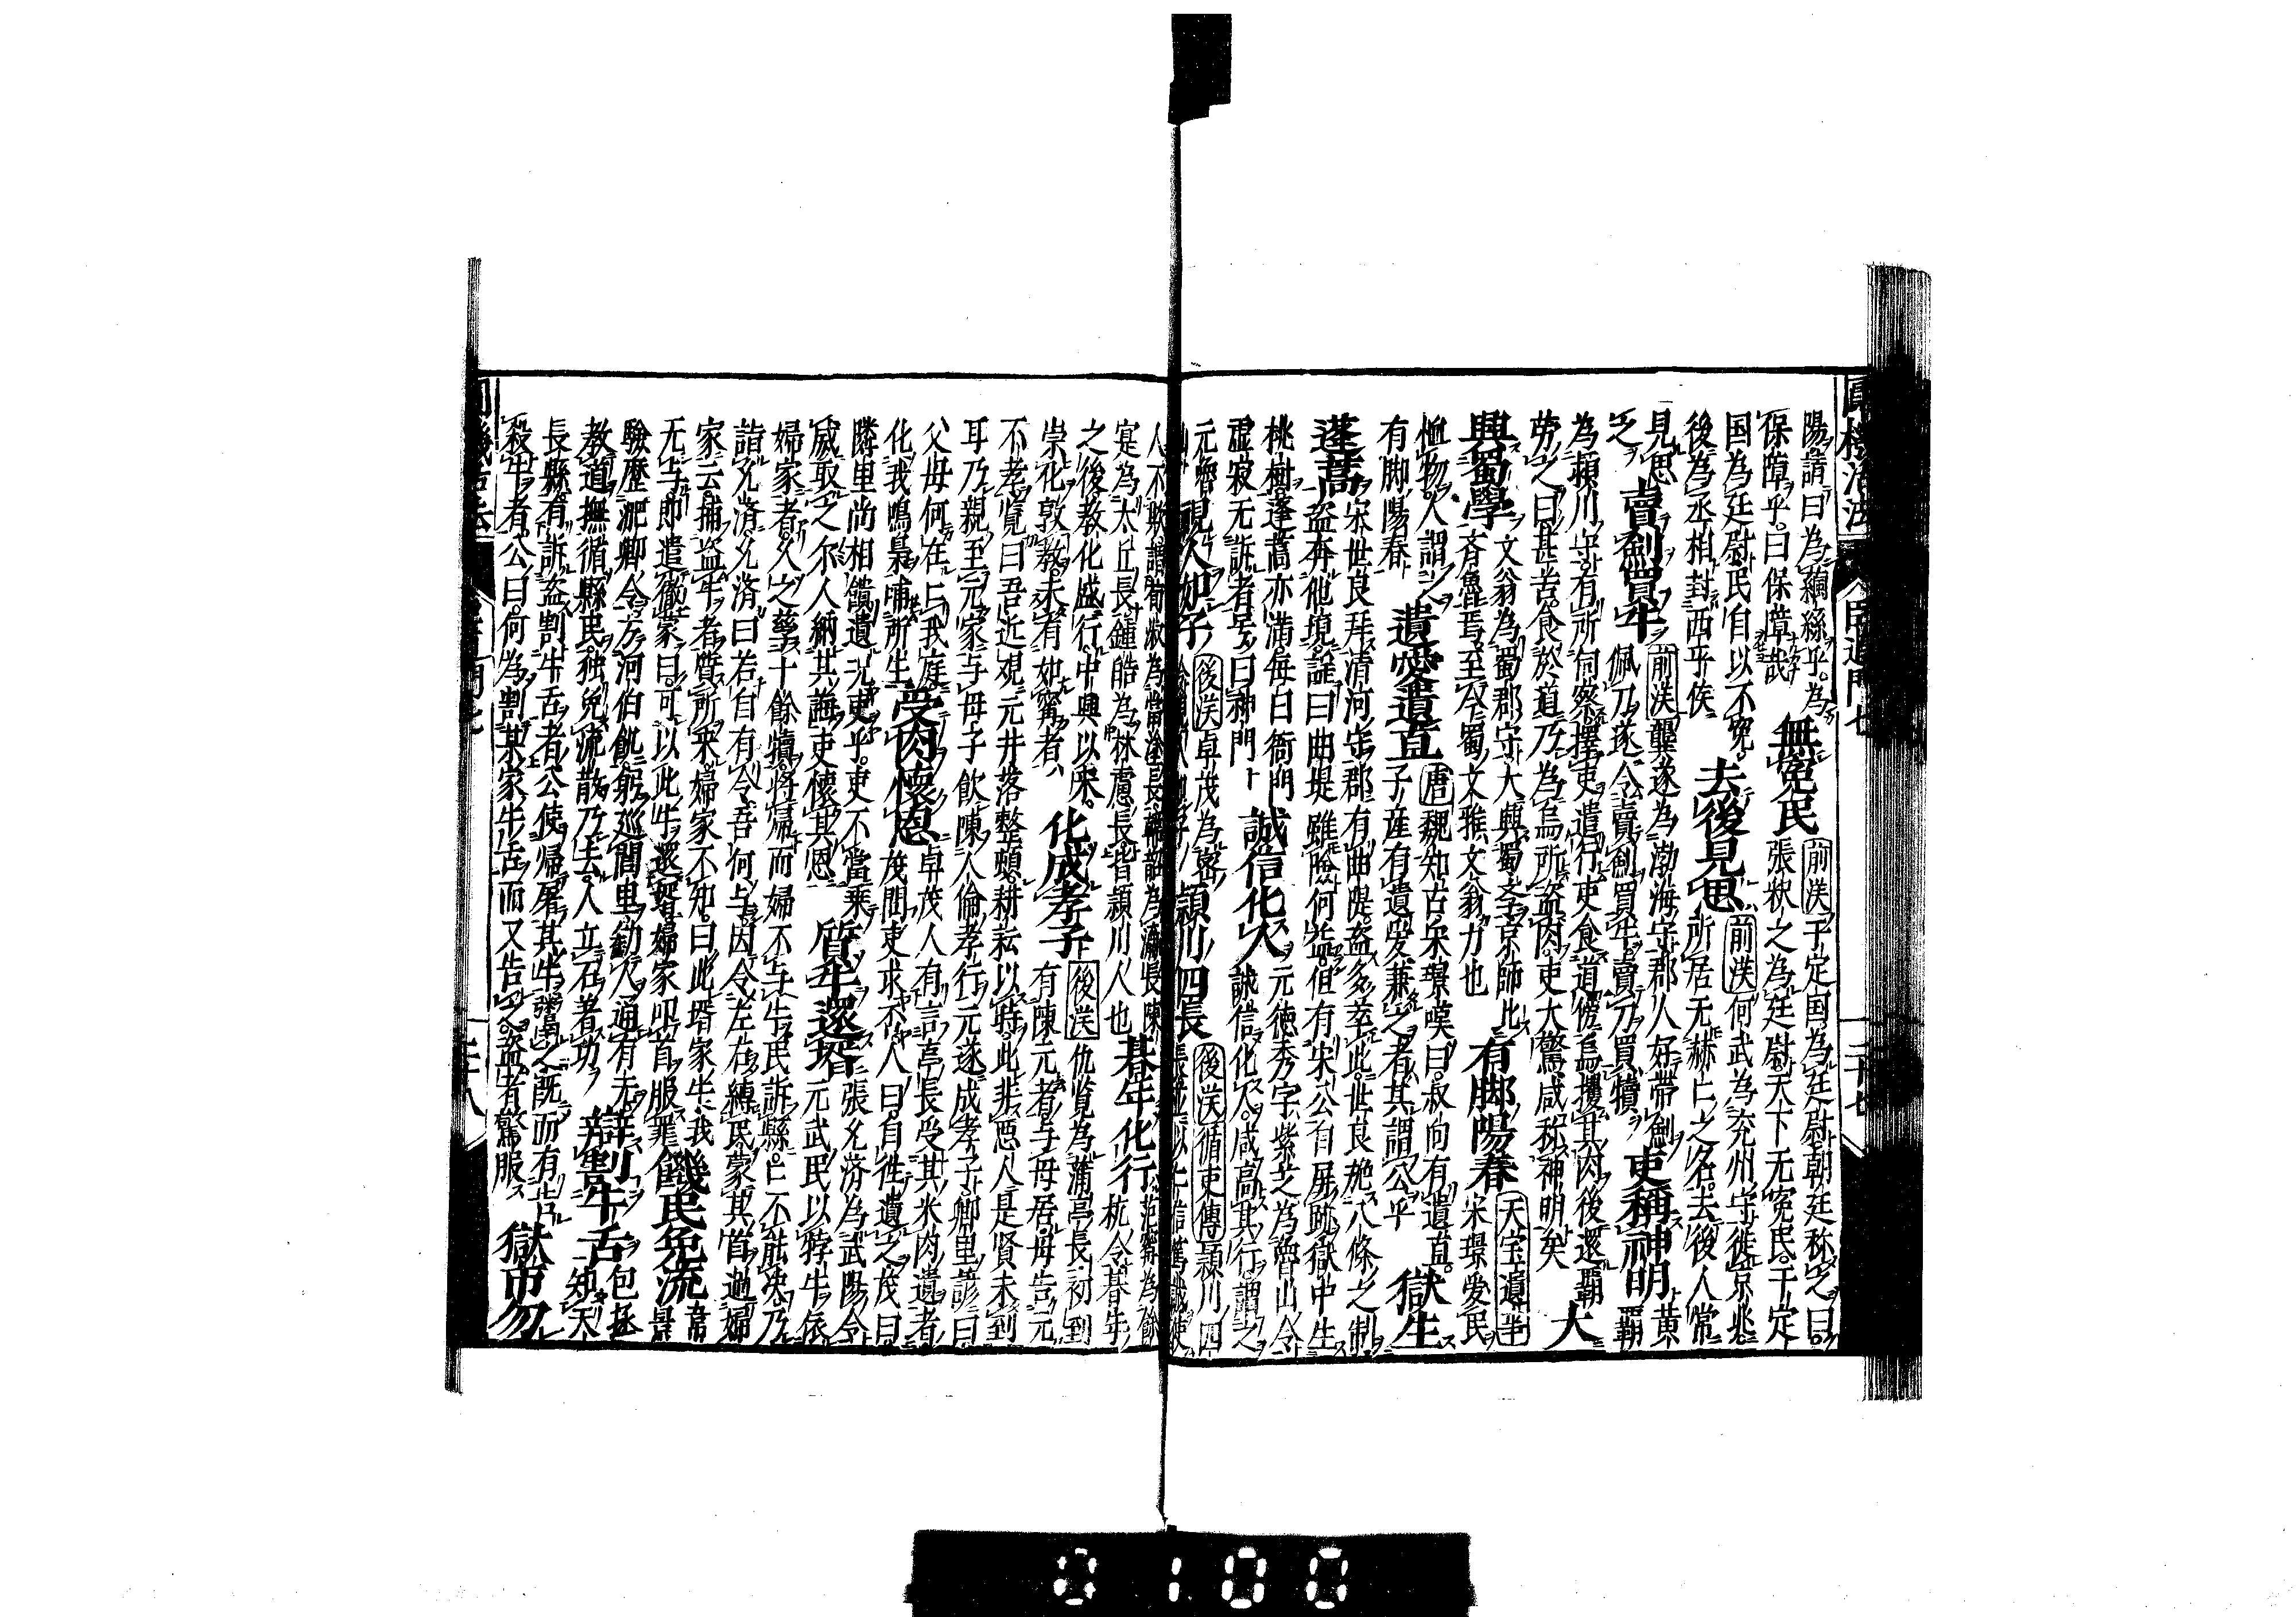 圓機活法 臣道門七 二十七
陽請曰為繭絲乎為
保障乎曰保障哉 無冤民 前漢于定国為廷尉朝廷称之曰
張釈之為廷尉天下无冤民于定
国為廷尉民自以不冤 去後見思 前漢何武為兗州守徙京兆
後為丞相封西平侯 所居无赫々之名去後人常
見思 賣劍買牛 前漢龔遂為渤海守郡人好帯劍
乏 佩刀遂令賣劍買牛賣刀買犢 吏稱神明 黄霸
為頴川守有所伺察擇吏遣行吏食道傍烏攫其肉後還霸
労之曰甚苦食於道乃為烏所盗肉吏大驚咸称神明矣 大
興蜀學 文翁為蜀郡守大興蜀学京師比
斉魯焉至今蜀文雅文翁力也 有脚陽春 天宝遺事 宋璟愛民
恤物人謂之
有脚陽春 遺愛遺直 唐魏知古卒宋璟嘆曰叔向有遺直
子産有遺愛兼之者其謂公乎 獄生
蓬蒿 宋世良拜清河守郡有曲隄盗多萃此世良施八條之制
盗奔他境謡曰曲堤雖險何益但有宋公自屏跡獄中生
桃樹蓬蒿亦満毎日衙門
虚寂无訴者号曰神門 誠信化人 元徳秀字紫芝為魯山令
誠信化人咸高其行謂之
元魯山 視人如子 後漢卓茂為密
頴川四長 後漢循吏傳頴川四
人不欺
寔為太丘長鍾皓為林慮長皆頴川人也 朞年化行 范甯為餘
杭令朞年
之後教化盛行中興以来
崇化敦教未有如甯者 化成孝子 後漢仇覧為蒲亭長初到
有陳元者与母居母告元
不孝覧曰吾近視元井落整頓耕耘以時此非悪人是賢未到
耳乃親至元家与母子飲陳人倫孝行元遂成孝子郷里諺曰
父母何在々我庭
化我鳴梟哺所生 受肉懐恩 卓茂人有言亭長受其米肉遺者
茂問吏求不人曰自往遺之茂曰
隣里尚相饋遺况吏乎吏不當乗
威取之尓人納其誨吏懐其恩 質牛還壻 張允済為武陽令
元武民以牸牛依
婦家者久之孳十餘犢將帰而婦不与牛民訴縣々不能决乃
詣允済允済曰若自有令吾何与因令左右縛民蒙其首過婦
家云捕盗牛者質所来婦家不知曰此壻家牛我
无与即遣徹蒙曰可以此牛還壻婦家叩首服罪 饑民免流 韋景
驗歴淝郷令方河伯飢躬巡閭里勧人通有无
教道撫循縣民独免流散乃去人立石著功 辯割牛舌 包拯
知天
長縣有訴盗割牛舌者公使帰屠其牛鬻之既而有告
殺牛者公曰何為割某家牛舌而又告之盗者驚服 獄市勿
二十八